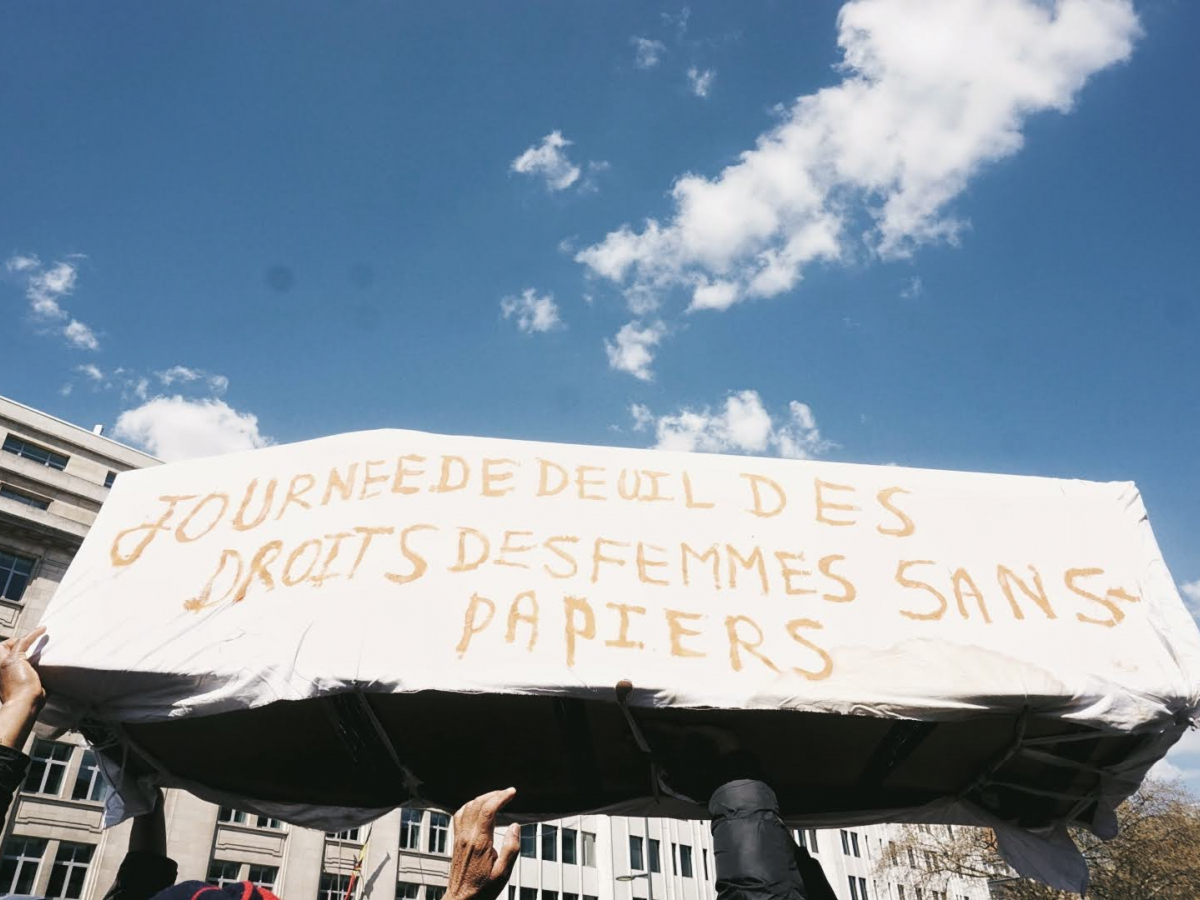 JOURNEE DE DEUIL DES
DROITS DES FEMMES SANS-
PAPIERS